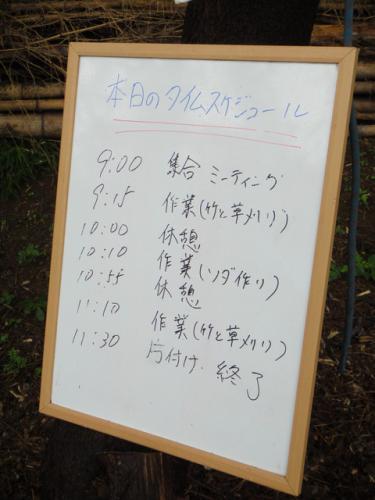 本日のタイムスケジュール
9:00 集合 ミーティング
9:15 作業(竹と草刈り)
10:00 休憩
10:10 作業(ソダ作り)
10:55 休憩
11:10 作業(竹と草刈り)
11:30 片付け. 終了